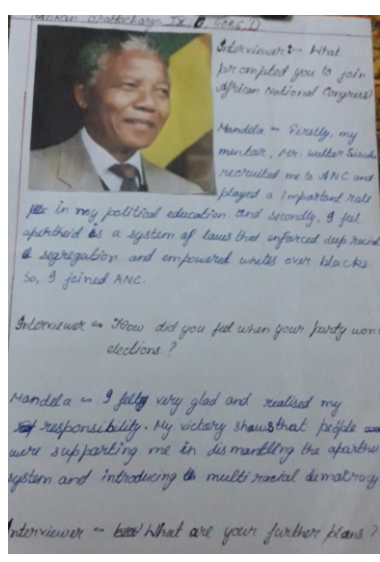 Bhattacharya IX
Interviewer :- What
prompted you to join
African National Congress?
Mandela - Firstly, my
mentor, Mr. Walter Sisulu
recruited me to ANC and
played a important role
in my political education. And secondly, I felt
apartheid is a system of laws that enforced deep racial
segregation and empowered whites over blacks.
So, I joined ANC.
Interviewer - How did you feel when your party won
elections?
Mandela - I felt very glad and realised my
responsibility. My victory shows that people
were supporting me in dismantling the aparthe
system and introducing multi racial democracy
Interviewer - What are your further plans?